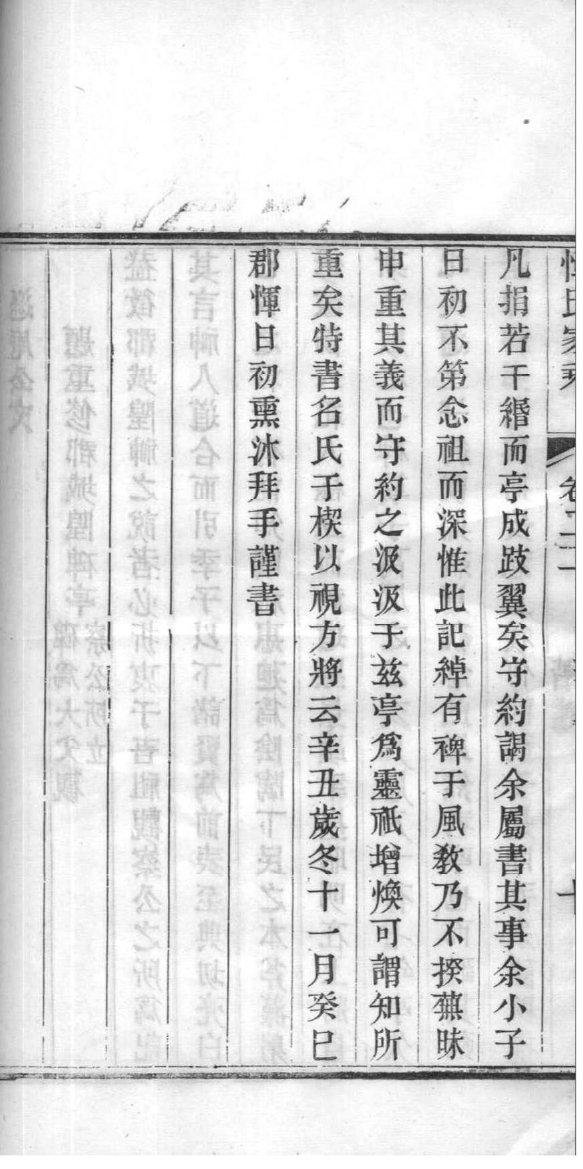 惲氏家乘 卷十二
凡捐若干緡而亭成跂翼矣守約謁余屬書其事余小子
日初不第念祖而深惟此記綽有裨于風敎乃不揆蕪昧
申重其義而守約之汲汲于玆亭爲靈祇增煥可謂知所
重矣特書名氏于楔以視方將云辛丑歲冬十一月癸巳
郡惲日初熏沐拜手謹書